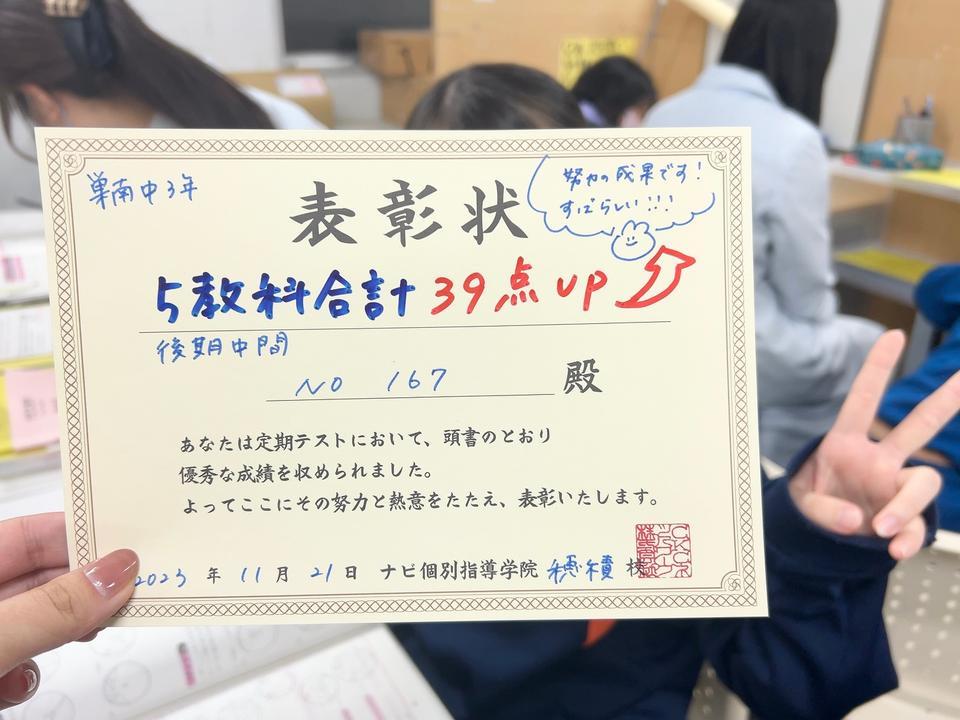 巣南中3年
表彰状
努力の成果です!
すばらしい!!!
5教科合計 39点 UP
後期中間
NO 167 殿
あなたは定期テストにおいて、頭書のとおり
優秀な成績を収められました。
よってここにその努力と熱意をたたえ、表彰いたします。
2023 年 11 月 21 日 ナビ個別指導学院 穂積 校